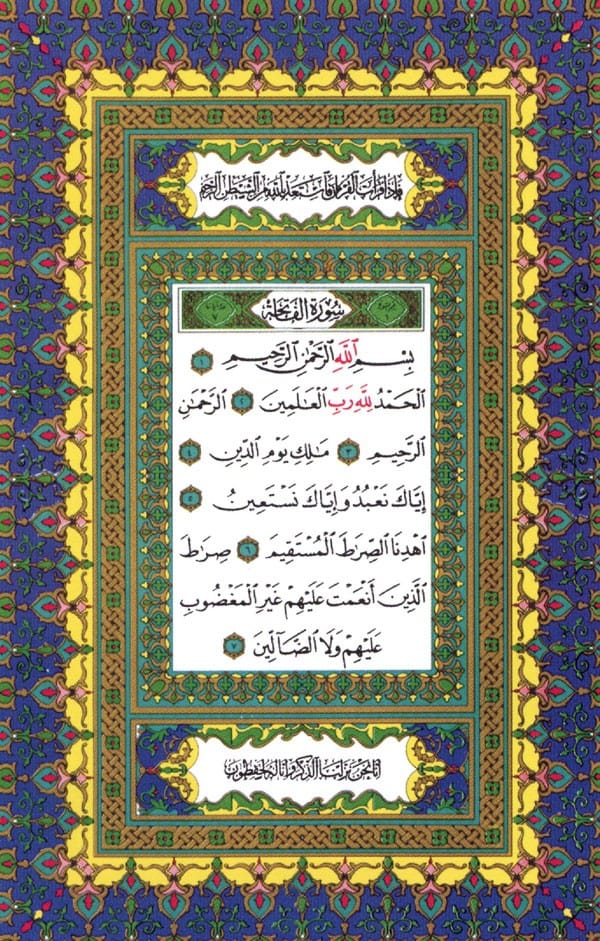 فإذا قرأت القرءان فاستعذ بالله من الشيطن الرجيم
سُورَةُ الفَاتِحَة
بِسْمِ اللَّهِ الرَّحْمَٰنِ الرَّحِيمِ ١
الْحَمْدُ لِلَّهِ رَبِّ الْعَالَمِينَ ٢ الرَّحْمَٰنِ
الرَّحِيمِ ٣ مَالِكِ يَوْمِ الدِّينِ ٤
إِيَّاكَ نَعْبُدُ وَإِيَّاكَ نَسْتَعِينُ ٥
اهْدِنَا الصِّرَاطَ الْمُسْتَقِيمَ ٦ صِرَاطَ
الَّذِينَ أَنْعَمْتَ عَلَيْهِمْ غَيْرِ الْمَغْضُوبِ
عَلَيْهِمْ وَلَا الضَّالِّينَ ٧
إنا نحن نزلنا الذكر وإنا له لحفظون